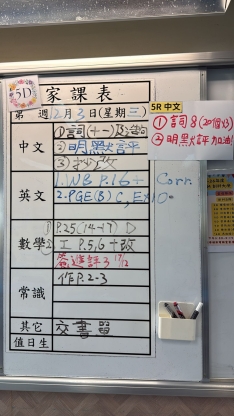 5D
家課表
第 週12月3日(星期三)
5R 中文
①言司8(20個好)
②明默評加油!
中文
①言司(十一)及造句
②明默評
③
英文
1.NB P.16+ Corr.
2.PGE(B) C, Ex10
數學
① P.25(14-17) D
② 工 P.5,6+改
進評3 17/12
常識
作P.2-3
其它
交書習
值日生